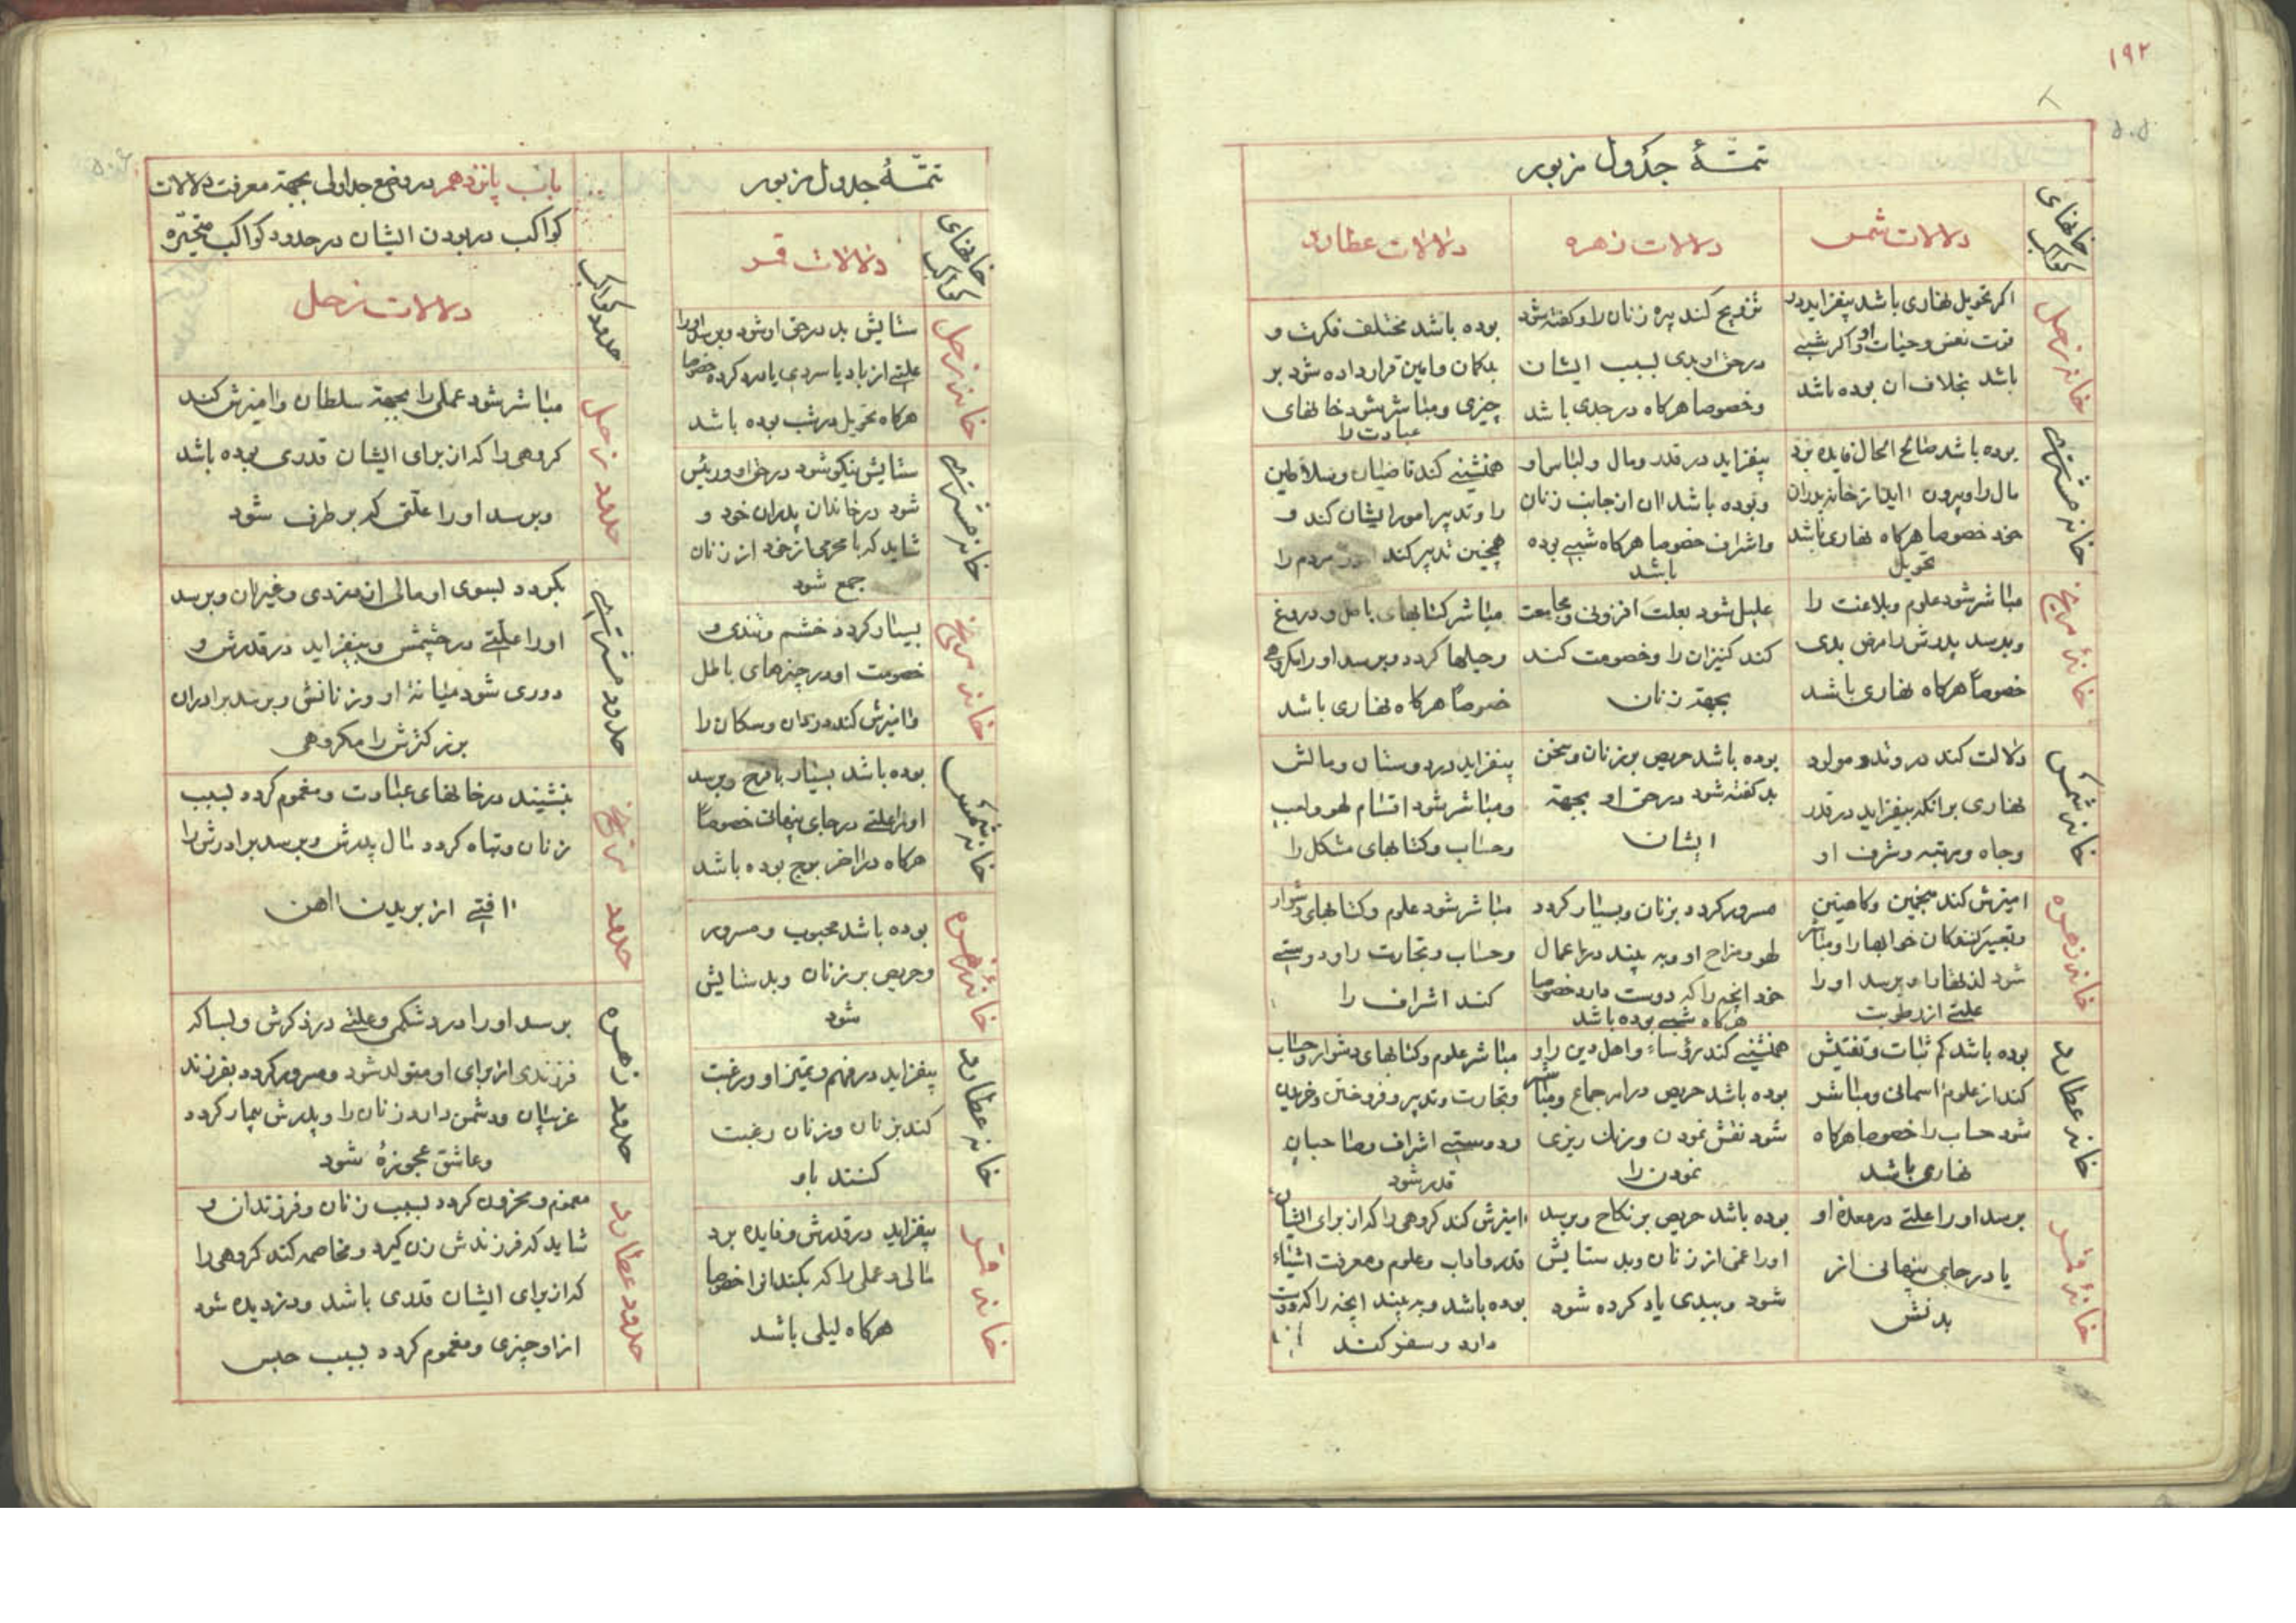 ۱۹۲
۵۰۵
تتمّهٔ جدول مزبور
خانهای کواکب
دلالات شمس
دلالات زهره
دلالات عطارد
خانهٔ زحل
اکر تحویل نهاری باشد بیفزاید در
قوت نفس و حیات او و اکر شبے
باشد بخلاف ان بوده باشد
تزویج کند پیره زنان را و کفته شود
در حق او بدی بسبب ایشان
و خصوصا هرکاه در جدی باشد
بوده باشد مختلف فکرت و
بدکمان و امین قرار داده شود بر
چیزی و مباشر شود خانهای
عبادت را
خانهٔ مشتری
بوده باشد صالح الحال فایده برد
مال را و بیرون اید از خانه پدران
خود خصوصا هرکاه نهاری باشد
تحویل
بیفزاید در قدر و مال و لباس او
و بوده باشد ان از جانب زنان
و اشراف خصوصا هرکاه شبے بوده
باشد
همنشینے کند قاضیان و سلاطین
را و تدبیر امور ایشان کند و
همچنین تدبیر کند مردم را
خانهٔ مریخ
مباشر شود علوم و بلاغت را
و برسد پدرش را مرض بدی
خصوصاً هرکاه نهاری باشد
علیل شود بعلت افزونی مجامعت
کند کنیزان را و خصومت کند
بجهة زنان
مباشر کتابهای باطل و دروغ
و حیلها کردد و برسد او را مکروهے
خصوصاً هرکاه نهاری باشد
خانه شمس
دلالت کند در وتد و مولود
نهاری برانکه بیفزاید در قدر
و جاه و مرتبه و شرف او
بوده باشد حریص بر زنان و سخن
بد کفته شود در حق او بجهة
ایشان
بیفزاید در دوستان و مالش
و مباشر شود اقسام لهو و لعب
و حساب و کتابهای مشکل را
خانهٔ زهره
امیزش کند منجمین و کاهنین
و تعبیر کنندکان خوابها را و مباشر
شود لذتها را و برسد او را
علتے از رطوبت
مسرور کردد بزنان و بسیار کردد
لهو و مزاح او و به بیند در اعمال
خود انچه را که دوست دارد خصوصا
هرکاه شبے بوده باشد
مباشر شود علوم و کتابهای دشوار
و حساب و تجارت را و دوستے
کند اشراف را
خانه عطارد
بوده باشد کم ثبات و تفتیش
کند از علوم اسمانی و مباشر
شود حساب را خصوصا هرکاه
نهاری باشد
همنشینے کند رؤساء و اهل دین را و
بوده باشد حریص در امر جماع و مباشر
شود نقش نمودن و رنک ریزی
نمودن را
مباشر علوم و کتابهای دشوار و حساب
و تجارت و تدبیر و فروختن و خریدن
و دوستے اشراف و صاحبان
قدر شود
خانهٔ قمر
برسد او را علتے در معدهٔ او
یا در جای پنهانی از
بدنش
بوده باشد حریص بر نکاح و برسد
او را غمی از زنان و بد ستایش
شود و ببدی یاد کرده شود
امیزش کند کروهی را که از برای ایشان
قدر و اداب و علوم و معرفت اشیاء
بوده باشد و به بیند انچه را که دوست
دارد و سفر کند
تتمّهٔ جدول مزبور
خانهای کواکب
دلالات قمر
خانهٔ زحل
ستایش بد در حق او شود و برسد او را
علتے از باد یا سردی یا درد کرده خصوصا
هرکاه تحویل در شب بوده باشد
خانه مشتری
ستایش نیکو شود در حق او و رئیس
شود در خاندان پدران خود و
شاید که با محرمی از خود از زنان
جمع شود
خانه مریخ
بسیار کردد خشم و تندی و
خصومت او در چیزهای باطل
و امیزش کند دزدان و سکان را
خانه شمس
بوده باشد بسیار با فرح و برسد
او را علتے در جای پنهانی خصوصاً
هرکاه در اخر برج بوده باشد
خانهٔ زهره
بوده باشد محبوب و مسرور
و حریص بر زنان و بد ستایش
شود
خانه عطارد
بیفزاید در فهم و تمیز او و رغبت
کند بزنان و زنان رغبت
کنند باو
خانه قمر
بیفزاید در قدرش و فایده برد
مالی و عملی را که بکند انرا خصوصا
هرکاه لیلی باشد
باب پانزدهم در وضع جداول بجهة معرفت دلالات
کواکب در بودن ایشان در حدود کواکب متحیّره
حدود کواکب
دلالات زحل
حدود زحل
مباشر شود عملی را بجهة سلطان و امیزش کند
کروهی را که از برای ایشان قدری بوده باشد
و برسد او را علّتی که برطرف شود
حدود مشتری
بکردد بسوی او مالی از مزدی و غیر ان و برسد
او را علّتے در چشمش و بیفزاید در قدرش و
دوری شود میانهٔ او و زنانش و برسد برادران
بزرکترش را مکروهی
حدود مریخ
بنشیند در خانهای عبادت و مغموم کردد بسبب
زنان و تباه کردد مال پدرش و برسد برادرش را
افتے از بریدن اهن
حدود زهره
برسد او را درد شکمی و علتے در ذکرش و بسا که
فرزندی از برای او متولد شود و مسرور کردد بفرزند
غریبان و دشمن دارد زنان را و پدرش بیمار کردد
و عاشق عجوزهٔ شود
حدود عطارد
مغموم و محزون کردد بسبب زنان و فرزندان و
شاید که فرزندش زن کیرد و مخاصمه کند کروهی را
که از برای ایشان قدری باشد و دزدیده شود
از او چیزی و مغموم کردد بسبب حبس